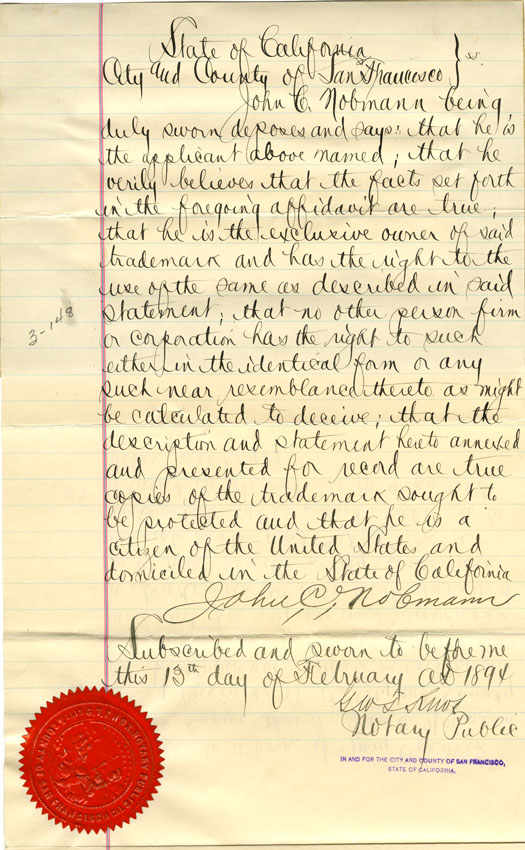 State of California
City and County of San Francisco } ss.
John C. Nobmann being
duly sworn deposes and says: that he is
the applicant above named; that he
verily believes that the facts set forth
in the foregoing affidavit are true;
that he is the exclusive owner of said
trademark and has the right to the
use of the same as described in said
statement; that no other person firm
or corporation has the right to such
either in the identical form or any
such near resemblance thereto as might
be calculated to deceive; that the
description and statement hereto annexed
and presented for record are true
copies of the trademark sought to
be protected and that he is a
citizen of the United States and
domiciled in the State of California
John C. Nobmann
Subscribed and sworn to before me
this 13th day of February AD 1894
Geo T Knox
Notary Public
IN AND FOR THE CITY AND COUNTY OF SAN FRANCISCO,
STATE OF CALIFORNIA.
3-148